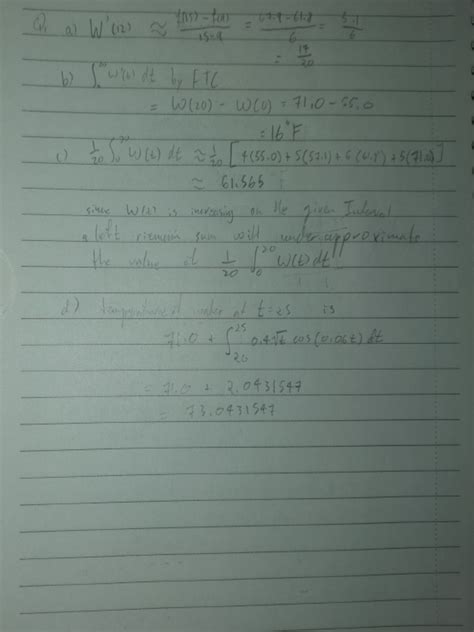 a) W'(12) ≈ f(15) - f(9) / 15-9 = 67.9 - 61.8 / 6 = 6.1 / 6
b) ∫₀²⁰ W'(t) dt by FTC
= W(20) - W(0) = 71.0 - 55.0
= 16°F
c) 1/20 ∫₀²⁰ W(t) dt ≈ 1/20 [4(55.0) + 5(57.1) + 6(61.8) + 5(67.9)]
since W(t) is increasing on the given Interval
a left riemann sum will underapproximate
the value of 1/20 ∫₀²⁰ W(t) dt
d) temperature of water at t=25 is
71.0 + ∫₂₀²⁵ 0.4√t cos(0.06t) dt
= 71.0 + 2.0431547
= 73.0431547